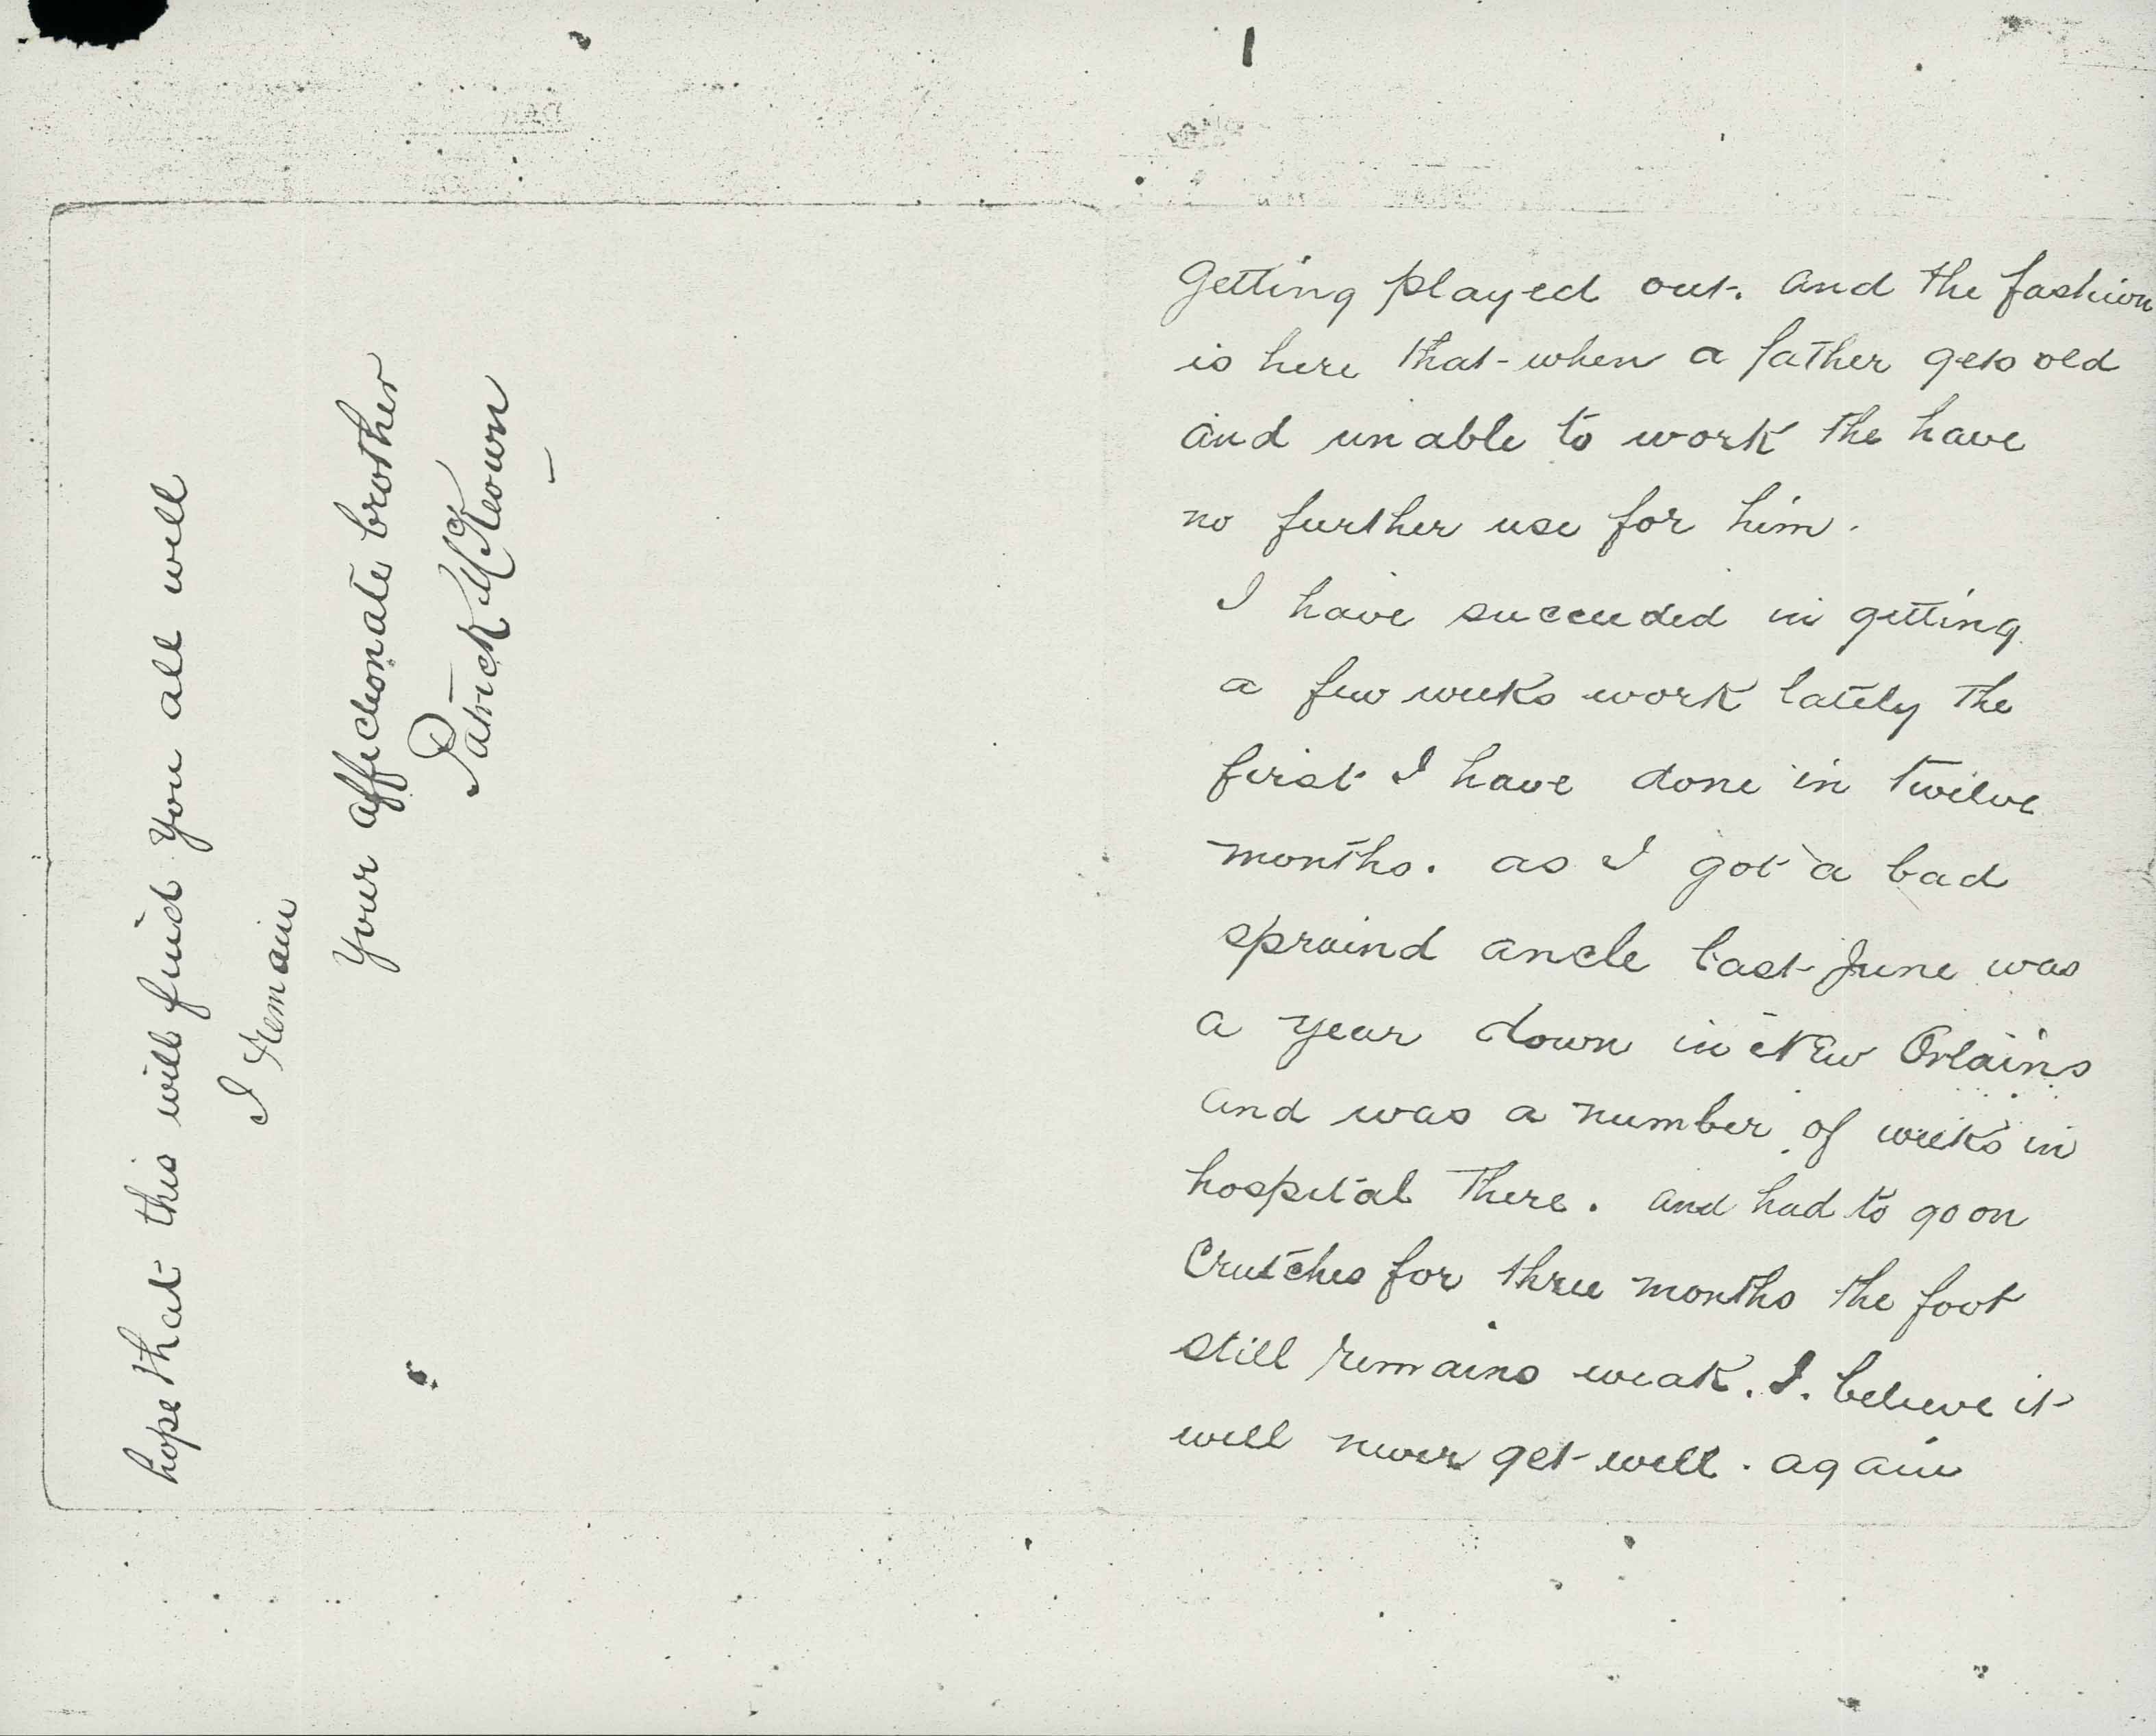 hope that this will find you all well
I Remain
Your affectionate brother
Patrick McKeown
Getting played out. and the fashion
is here that when a father gets old
and unable to work the have
no further use for him.
I have succeeded in getting
a few weeks work lately the
first I have done in twelve
months. as I got a bad
spraind ancle last June was
a year down in New Orlains
and was a number of weeks in
hospital there. and had to go on
Crutches for three months the foot
still remains weak. I. believe it
will never get well. again